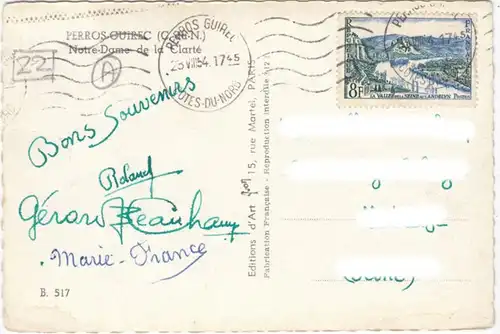 PERROS-GUIREC (C.-du-N.)
Notre-Dame de la Clarté
22
A
PERROS GUIREC
25 VIII 54. 1745
COTES-DU-NORD
1745
8F
LA VALLÉE DE LA SEINE AUX ANDELYS
Bons Souvenirs
Roland
Gérard Beauchamp
Marie-France
B. 517
Editions d'Art 15, rue Martel, PARIS
Fabrication Française - Reproduction interdite